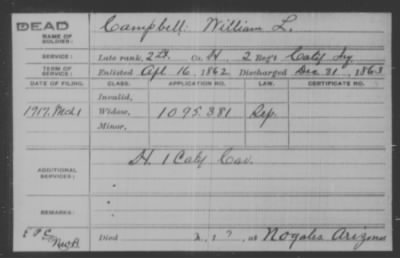 DEAD
NAME OF SOLDIER: Campbell William L.
SERVICE: Late rank, 2 Lt. Co. H, 2 Reg't Calif Inf.
TERM OF SERVICE: Enlisted Apl 16, 1862 Discharged Dec 31, 1863
DATE OF FILING. CLASS. APPLICATION NO. LAW. CERTIFICATE NO.
Invalid,
1917, Mch 1 Widow, 1095.381 Rep.
Minor,
ADDITIONAL SERVICES: H. 1 Calif Cav.
REMARKS:
Died ?, at Nogales Arizona